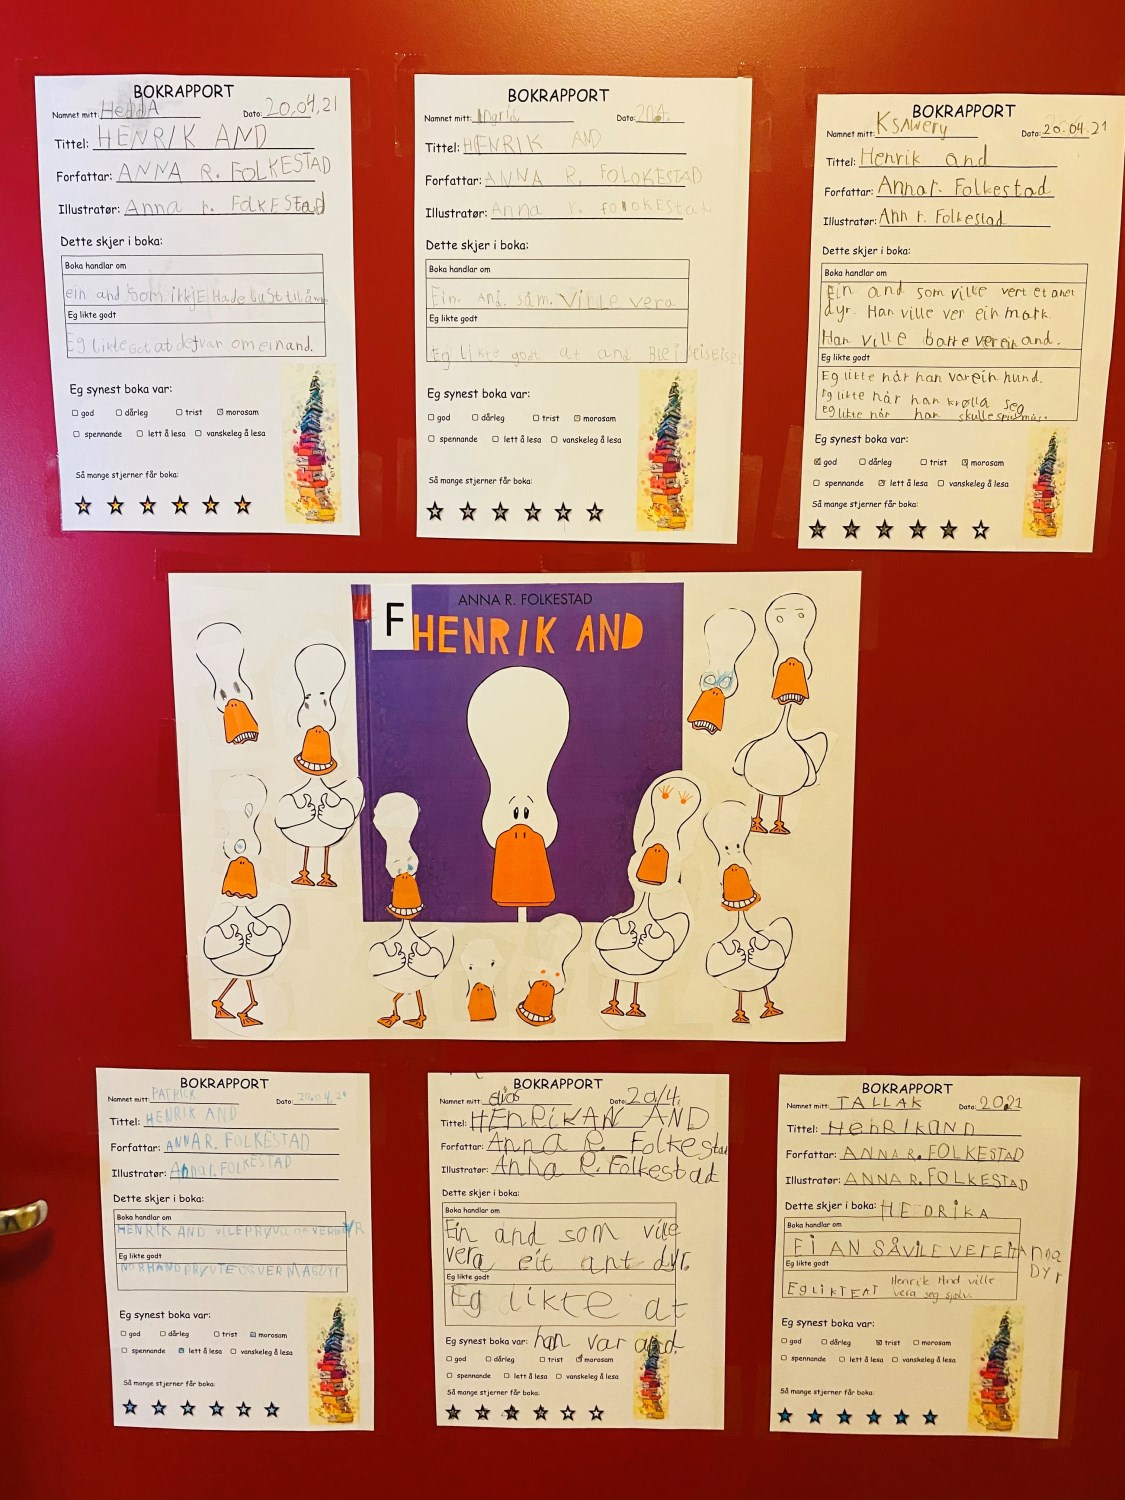 BOKRAPPORT
Namnet mitt: HeddA Dato: 20.04.21
Tittel: HENRIK AND
Forfattar: ANNA R. FOLKESTAD
Illustratør: Anna r. FOLKESTad
Dette skjer i boka:
Boka handlar om
ein and som ikkJE Hade lust til å
Eg likte godt
Eg likte Got at det var om ein and.
Eg synest boka var:
god dårleg trist morosam
spennande lett å lesa vanskeleg å lesa
Så mange stjerner får boka:
BOKRAPPORT
Namnet mitt: Ingrid Dato: 20.4.
Tittel: HENRIK AND
Forfattar: ANNA R. FOLOKESTAD
Illustratør: Anna r. folOKEStad
Dette skjer i boka:
Boka handlar om
Ein. And. såm. Ville vera
Eg likte godt
Eg likte godt at and Blei
Eg synest boka var:
god dårleg trist morosam
spennande lett å lesa vanskeleg å lesa
Så mange stjerner får boka:
BOKRAPPORT
Namnet mitt: Ksawery Dato: 20.04.21
Tittel: Henrik and
Forfattar: Anna r. Folkestad
Illustratør: Ann r. Folkestad
Dette skjer i boka:
Boka handlar om
Ein and som ville vert et anet
dyr. Han ville ver ein mark.
Han ville barre ver ein and.
Eg likte godt
Eg likte når han var ein hund.
Eg likte når han krølla seg
eg likte når han skulle
Eg synest boka var:
god dårleg trist morosam
spennande lett å lesa vanskeleg å lesa
Så mange stjerner får boka:
F
ANNA R. FOLKESTAD
HENRIK AND
BOKRAPPORT
Namnet mitt: PATRICK Dato: 20.04.21
Tittel: HENRIK AND
Forfattar: ANNA R. FOLKESTAD
Illustratør: Anna r. FOLKESTAD
Dette skjer i boka:
Boka handlar om
HENRIK AND VILE PRØVE
Eg likte godt
NOR HAN PRØVTE
Eg synest boka var:
god dårleg trist morosam
spennande lett å lesa vanskeleg å lesa
Så mange stjerner får boka:
BOKRAPPORT
Namnet mitt: Elias Dato: 20/4.
Tittel: HENRIKAN AND
Forfattar: Anna R. Folkestad
Illustratør: Anna R. Folkestad
Dette skjer i boka:
Boka handlar om
Ein and som ville
vera eit ant dyr.
Eg likte godt
Eg likte at
Eg synest boka var: han var and.
god dårleg trist morosam
spennande lett å lesa vanskeleg å lesa
Så mange stjerner får boka:
BOKRAPPORT
Namnet mitt: TALLAK Dato: 2021
Tittel: HeNRIKAND
Forfattar: ANNA R. FOLKESTAD
Illustratør: ANNA R. FOLKESTAD
Dette skjer i boka: HEDRIKA
Boka handlar om
EI AN SÅ VILE VERE IT Anna
DYr
Eg likte godt
Eg LIKTE AT Henrik And ville
vera seg sjølv.
Eg synest boka var:
god dårleg trist morosam
spennande lett å lesa vanskeleg å lesa
Så mange stjerner får boka: